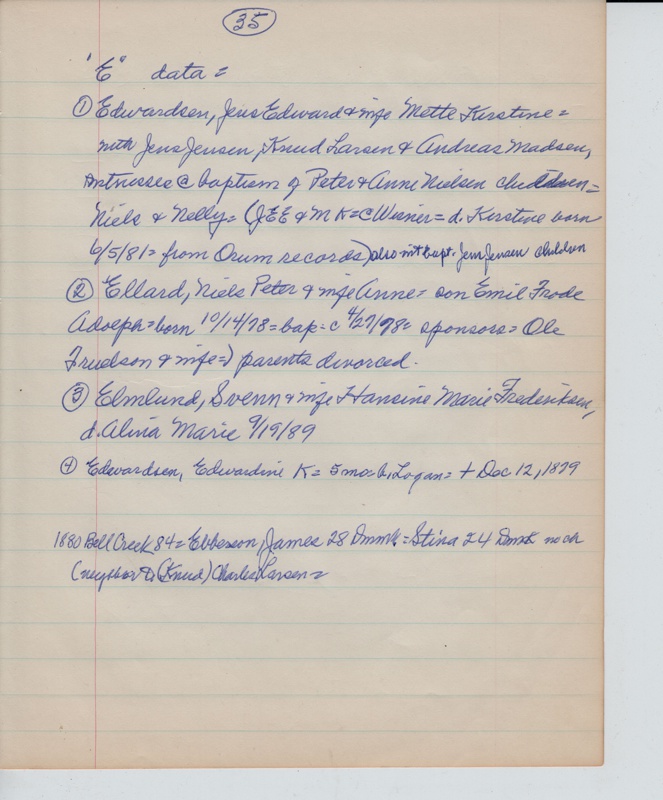 35
"E" data =
① Edwardsen, Jens Edward & wife Mette Kirstine =
with Jens Jensen, Knud Larsen & Andreas Madsen,
Witnesses @ baptism of Peter & Anne Nielsen children =
Niels & Nelly = (JEE & MK = C Wisner = d. Kirstine born
6/5/81 = from Orum records) also wit bapt. Jens Jensen children
② Ellard, Niels Peter & wife Anne = son Emil Frode
Adolph = born 10/14/78 = bap = c 4/27/78 = sponsors = Ole
Frudson & wife =) parents divorced.
③ Elmlund, Svenn & wife Hansine Marie Frederiksen,
d. Alina Marie 9/19/89
④ Edwardsen, Edwardine K = 5 mo = b. Logan = + Dec 12, 1879
1880 Bell Creek 84 = Ebberson, James 28 Dnmk = Stina 24 Dnmk no ch
(neighbor to (Knud) Charles Larsen =